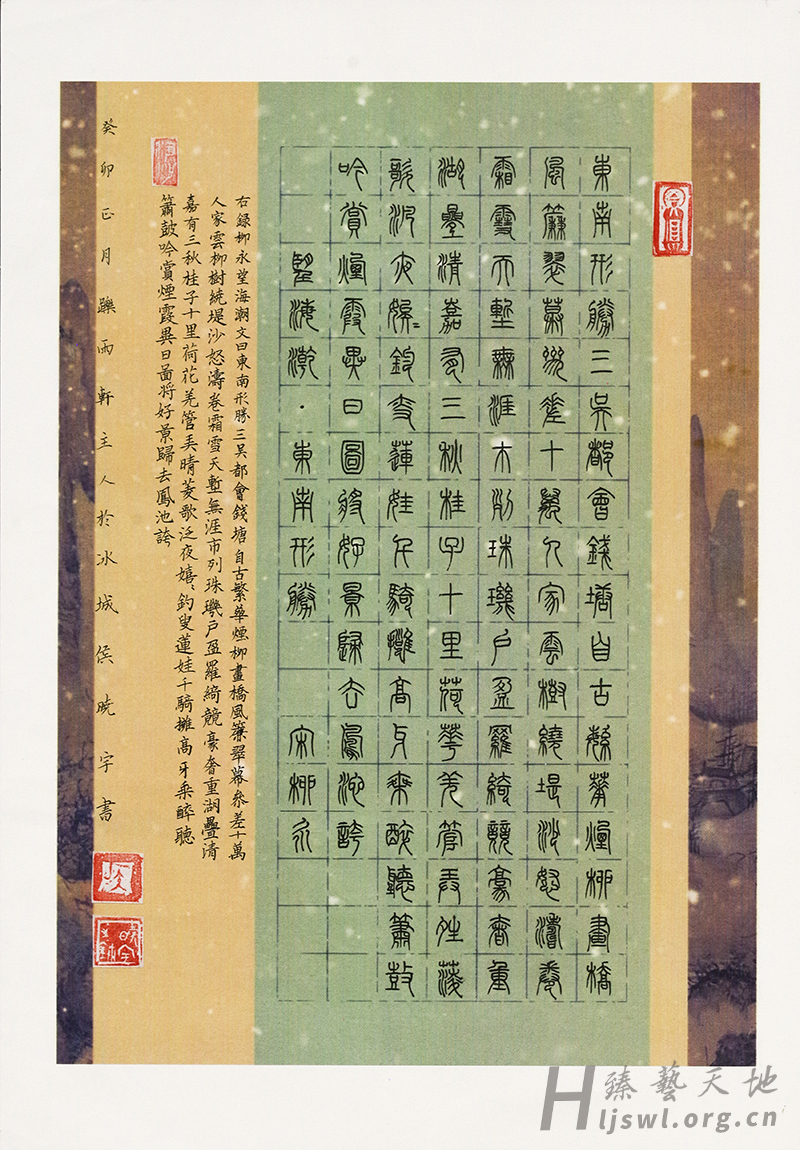 東南形勝三吳都會錢塘自古繁華煙柳畫橋
風簾翠幕參差十萬人家雲樹繞堤沙怒濤卷
霜雪天塹無涯市列珠璣戶盈羅綺競豪奢重
湖疊清嘉有三秋桂子十里荷華羌管弄晴菱
歌泛夜嬉〻釣叟蓮娃千騎擁高牙乘醉聽簫鼓
吟賞煙霞異日圖將好景歸去鳳池誇
望海潮·東南形勝 宋柳永
右録柳永望海潮文曰東南形勝三吳都會錢塘自古繁華煙柳畫橋風簾翠幕參差十萬
人家雲柳樹繞堤沙怒濤卷霜雪天塹無涯市列珠璣戶盈羅綺競豪奢重湖疊清
嘉有三秋桂子十里荷花羌管弄晴菱歌泛夜嬉、釣叟蓮娃千騎擁高牙乘醉聽
簫鼓吟賞煙霞異日圖將好景歸去鳳池誇
癸卯正月躒雨軒主人於冰城侯曉宇書
臻藝天地
Hljswl.org.cn